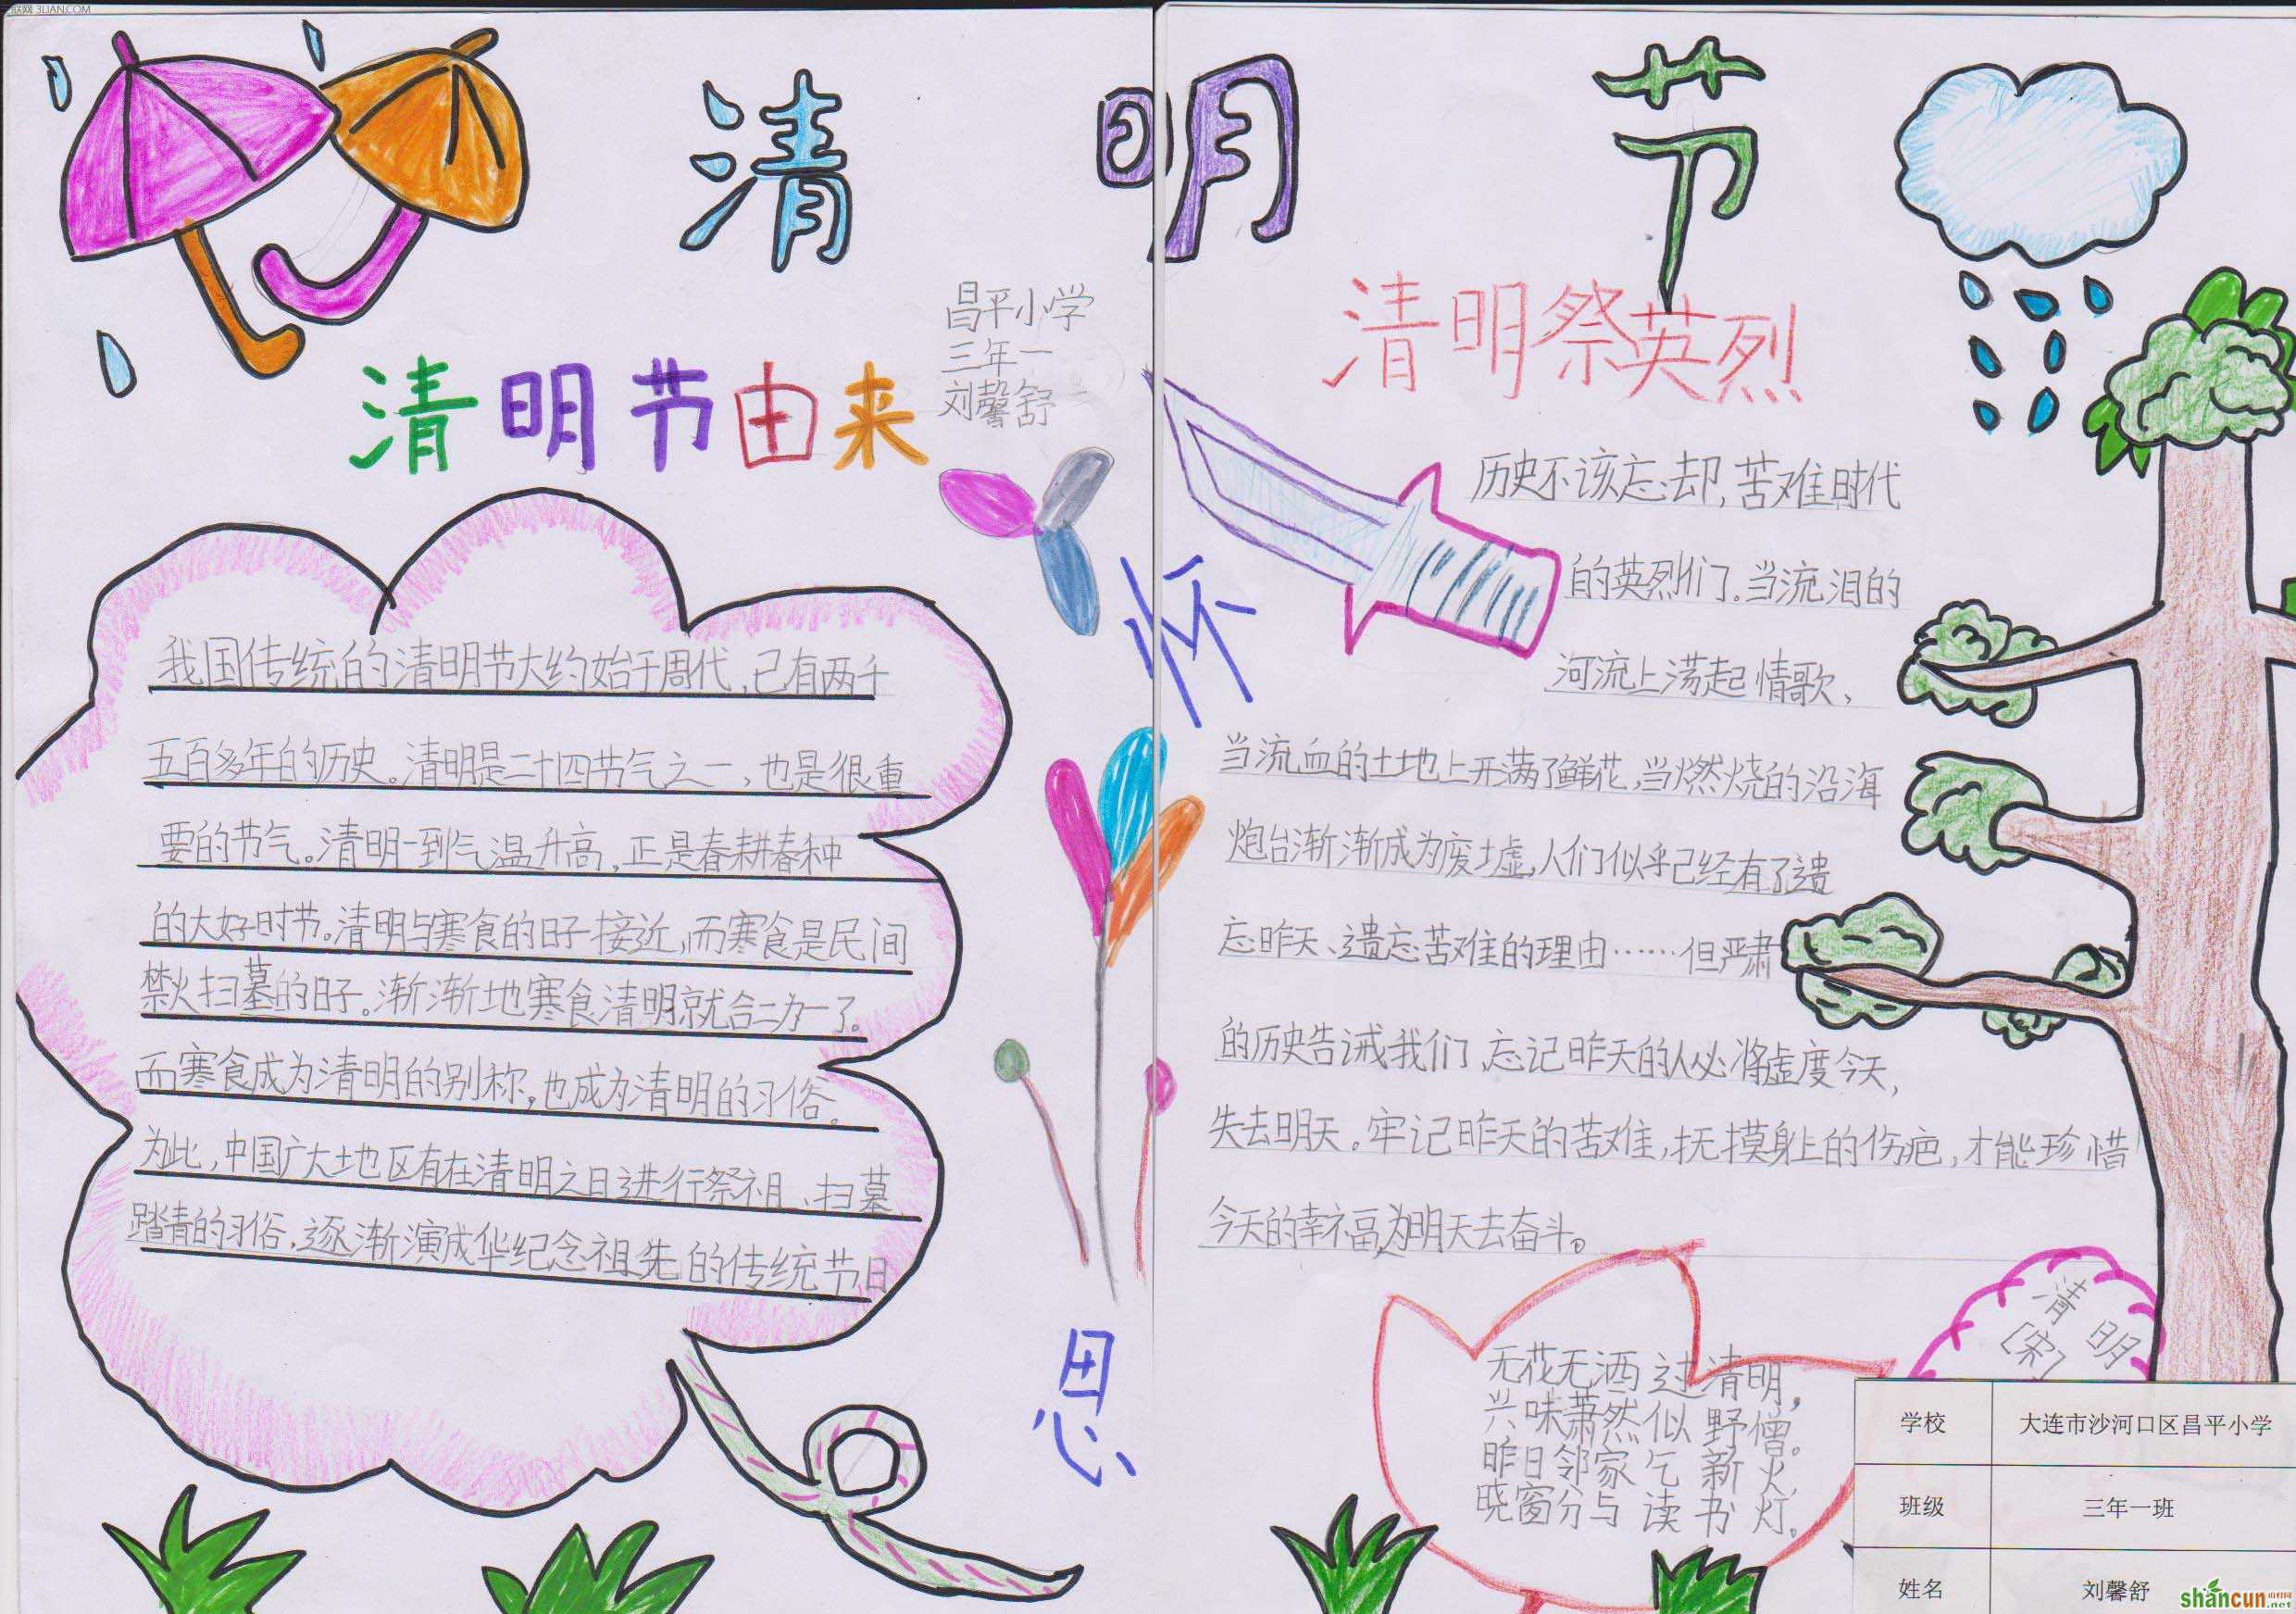 3LIAN.COM
清明节
昌平小学
三年一
刘馨舒
清明节由来
我国传统的清明节大约始于周代,已有两千
五百多年的历史。清明是二十四节气之一,也是很重
要的节气。清明一到气温升高,正是春耕春种
的大好时节。清明与寒食的日子接近,而寒食是民间
禁火扫墓的日子。渐渐地寒食清明就合二为一了。
而寒食成为清明的别称,也成为清明的习俗。
为此,中国广大地区有在清明之日进行祭祖、扫墓、
踏青的习俗,逐渐演成华纪念祖先的传统节日
怀
思
清明祭英烈
历史不该忘却,苦难时代
的英烈们。当流泪的
河流上荡起情歌、
当流血的土地上开满了鲜花,当燃烧的沿海
炮台渐渐成为废墟,人们似乎已经有了遗
忘昨天、遗忘苦难的理由……但严肃
的历史告诫我们,忘记昨天的人必将虚度今天,
失去明天。牢记昨天的苦难,抚摸身上的伤疤,才能珍惜
今天的幸福,为明天去奋斗。
清明
[宋]
无花无酒过清明,
兴味萧然似野僧。
昨日邻家乞新火,
晓窗分与读书灯。
学校 大连市沙河口区昌平小学
班级 三年一班
姓名 刘馨舒
shancun.net